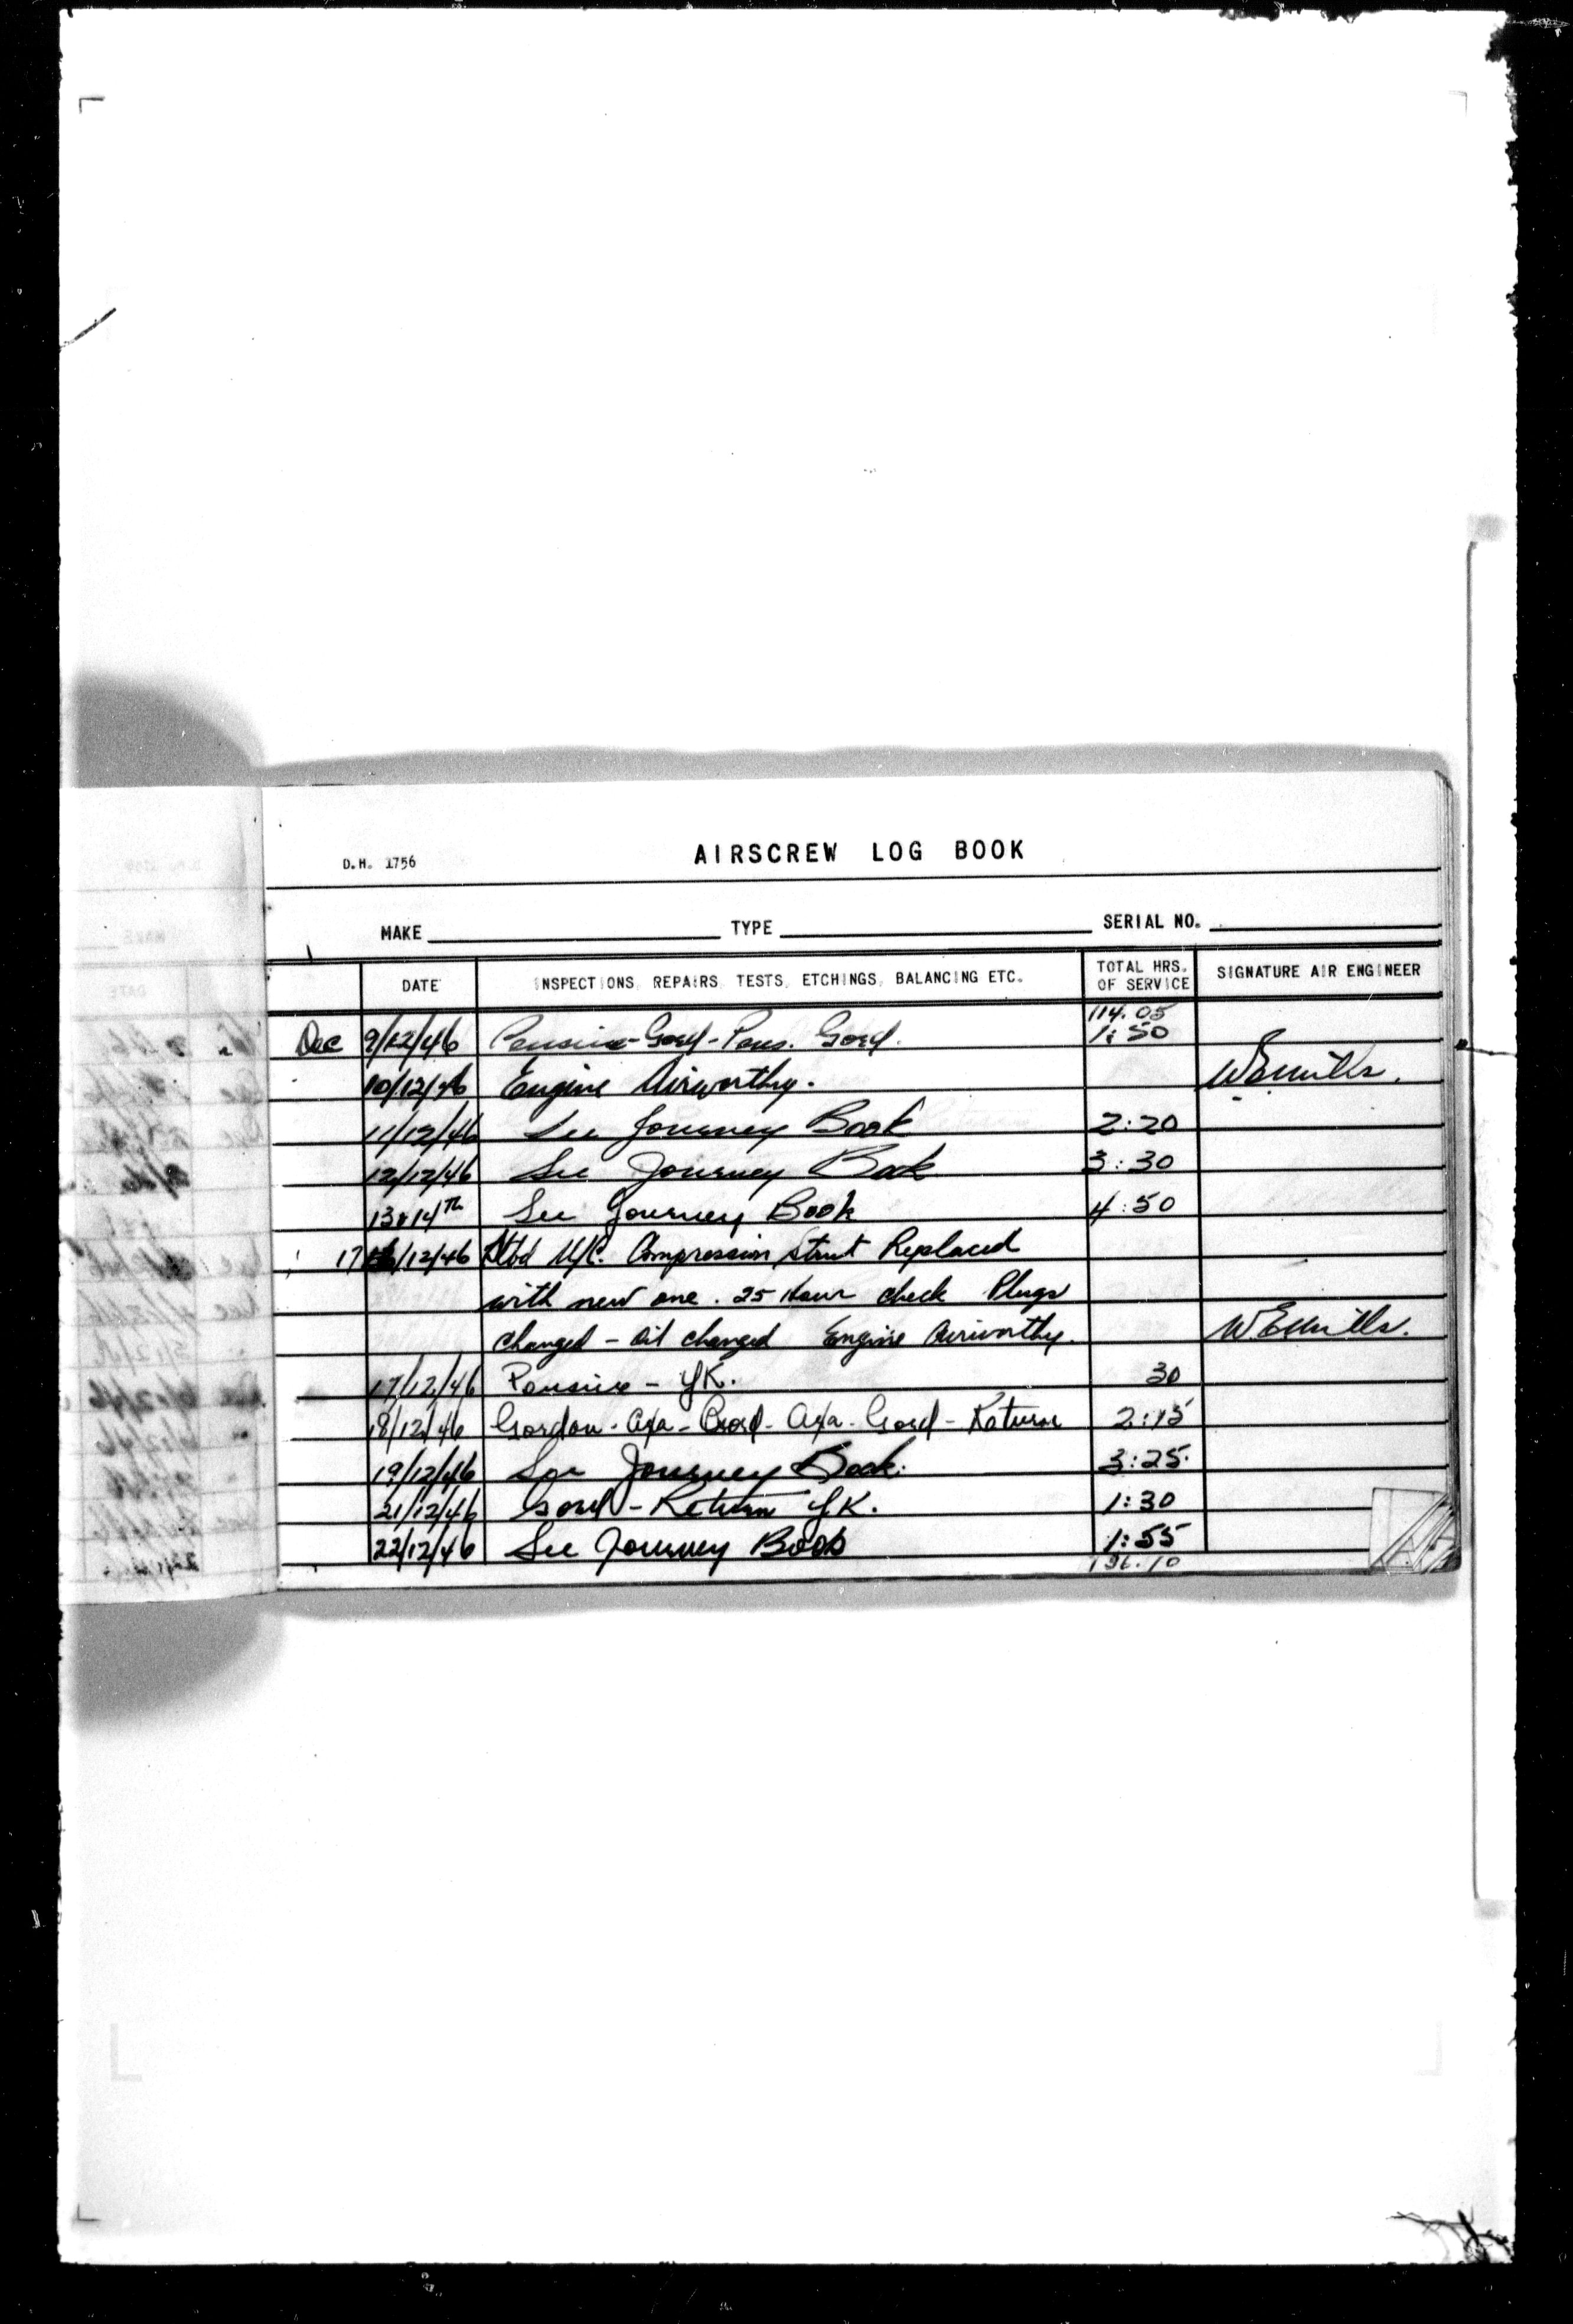 D.H. 1756
AIRSCREW LOG BOOK
MAKE TYPE SERIAL NO.
DATE INSPECTIONS, REPAIRS, TESTS, ETCHINGS, BALANCING ETC. TOTAL HRS. OF SERVICE SIGNATURE AIR ENGINEER
114.05
Dec 9/12/46 Pensive-Gord-Pens. Gord. 1:50
10/12/46 Engine Airworthy. WEMills.
11/12/46 See Journey Book 2:20
12/12/46 See Journey Book 3:30
13&14th See Journey Book 4:50
17 /12/46 Stbd U/C. Compression strut Replaced
with new one. 25 Hour check Plugs
changed - oil changed Engine Airworthy. WEMills.
17/12/46 Pensive - YK. 30
18/12/46 Gordon - - Gord - - Gord - Return 2:15
19/12/46 See Journey Book. 3:25
21/12/46 Gord - Return YK. 1:30
22/12/46 See Journey Book 1:55
136.10